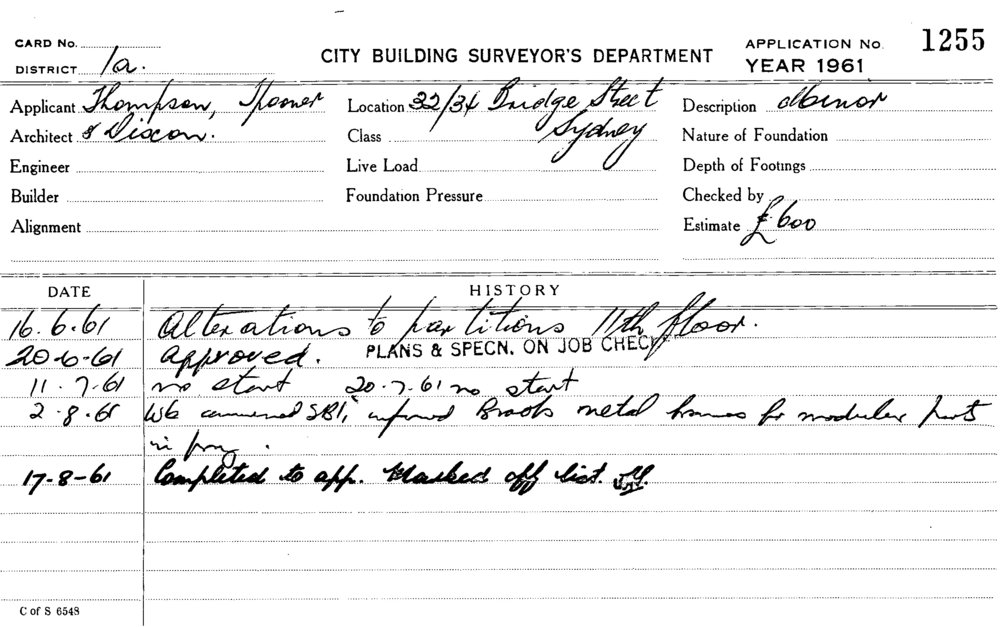 CARD No.
DISTRICT 1a.
CITY BUILDING SURVEYOR'S DEPARTMENT
APPLICATION No. 1255
YEAR 1961
Applicant Thompson, Spooner
Architect & Dixon.
Engineer
Builder
Alignment
Location 32/34 Bridge Street
Class Sydney
Live Load
Foundation Pressure
Description Minor
Nature of Foundation
Depth of Footings
Checked by
Estimate £600
DATE HISTORY
16.6.61 Alterations to partitions 11th floor.
20-6-61 approved. PLANS & SPECN. ON JOB CHECK
11.7.61 no start 20.7.61 no start
2.8.61 metal frames for modular parts
in
17-8-61 Completed to app. Marked off list.
C of S 6548